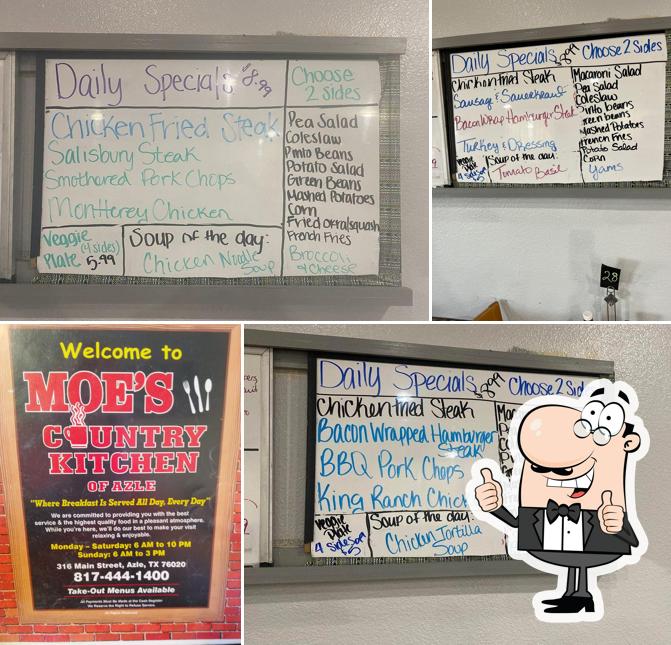 Daily Specials $8.99
Choose
2 sides
Chicken Fried Steak
Salisbury Steak
Smothered Pork Chops
Montterey Chicken
Pea Salad
Coleslaw
Pinto Beans
Potato Salad
Green Beans
Mashed Potatoes
Corn
Fried okra/squash
French Fries
Broccoli
& cheese
Veggie (4 sides)
Plate 5.99
Soup of the day:
Chicken Noodle
Soup
Daily Specials 8.99
Choose 2 Sides
Chicken Fried Steak
Sausage & Sauerkraut
Bacon Wrap Hamburger Steak
Turkey & Dressing
Macaroni Salad
Pea Salad
Coleslaw
Pinto beans
Green beans
Mashed Potatoes
French Fries
Potato Salad
Corn
Yams
Veggie
Plate
4 sides
Soup of the day:
Tomato Basil
28
Welcome to
MOE'S
COUNTRY
KITCHEN
OF AZLE
"Where Breakfast Is Served All Day, Every Day"
We are committed to providing you with the best
service & the highest quality food in a pleasant atmosphere.
While you're here, we'll do our best to make your visit
relaxing & enjoyable.
Monday - Saturday: 6 AM to 10 PM
Sunday: 6 AM to 3 PM
316 Main Street, Azle, TX 76020
817-444-1400
Take-Out Menus Available
All Payments Must Be Made at the Cash Register
We Reserve the Right to Refuse Service.
Daily Specials 8.99
Choose 2 Sid
Chicken Fried Steak
Bacon Wrapped Hamburger
Steak
BBQ Pork Chops
King Ranch Chick
Veggie
Plate
4 Sides
Soup of the day:
Chicken Tortilla
Soup